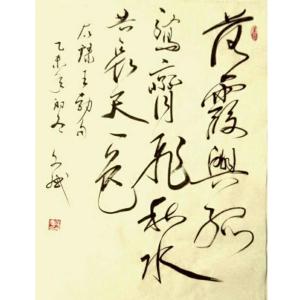 落霞與孤
鶩齊飛秋水
共長天一色
右錄王勃句
乙未年初冬